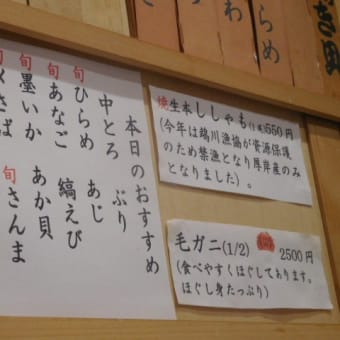 本日のおすすめ
中とろ ぶり
旬 ひらめ あじ
旬 あなご 縞えび
旬 墨いか あか貝
さば 旬 さんま
焼生本ししゃも 550円
(今年は鵡川漁協が資源保護
のため禁漁となり厚岸産のみ
となりました)。
毛ガニ(1/2) 2500円
(食べやすくほぐしております。
ほぐし身たっぷり)
ひらめ
わ
貝